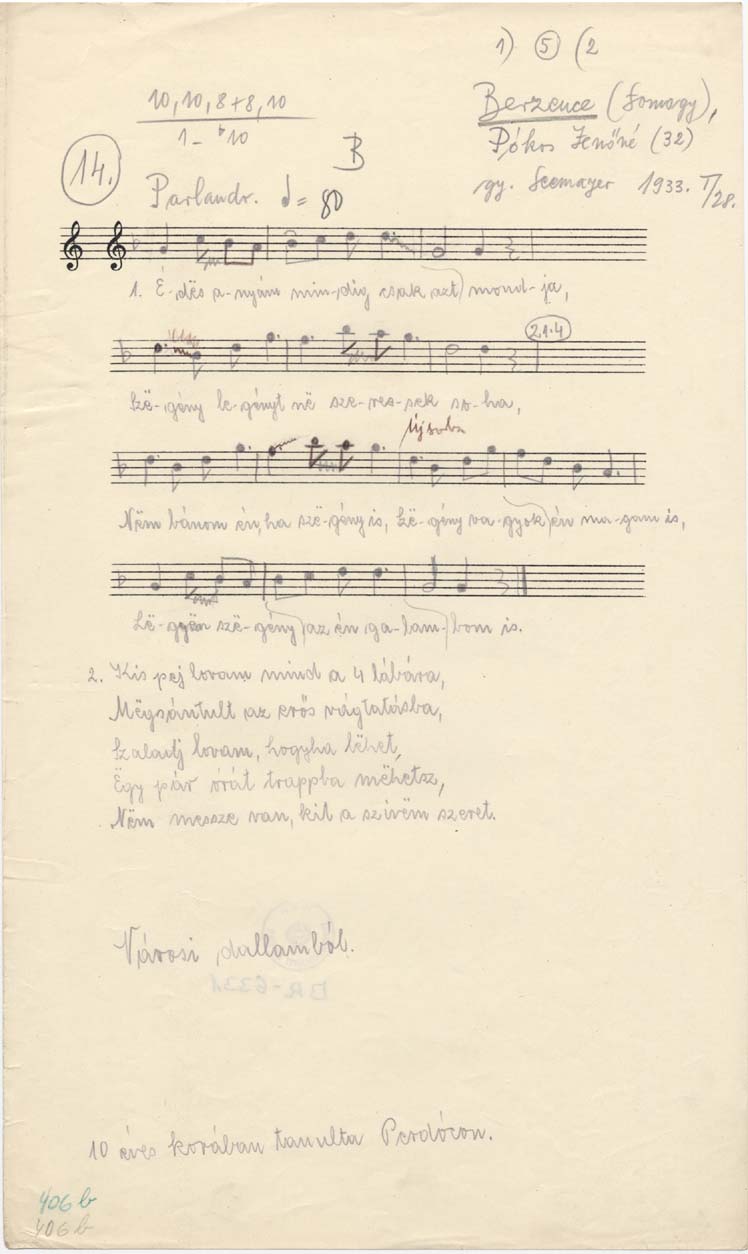 1) 5 (2
10, 10, 8+8, 10
1 - b10
Berzence (Somogy),
Pókos Jenőné (32)
gy. Seemayer 1933. I/28.
14.
B
Parlando. = 80
1. É-dës a-nyám min-dig csak azt mond-ja,
2.1.4
Szë-gény le-gényt në sze-res-sek so-ha,
Új sorba
Nëm bánom én, ha szë-gény is, Lë-gény va-gyok én ma-gam is,
Lë-gyën szë-gény az én ga-lam-bom is.
2. Kis pej lovam mind a 4 lábára,
Mëgsántult az erős vágtatásba,
Szaladj lovam, hogyha lëhet,
Ëgy pár órát trappba mëhetsz,
Nëm messze van, kit a szivëm szeret.
Városi dallamból.
BR-6331
10 éves korában tanulta Perdócon.
406 b
406 b